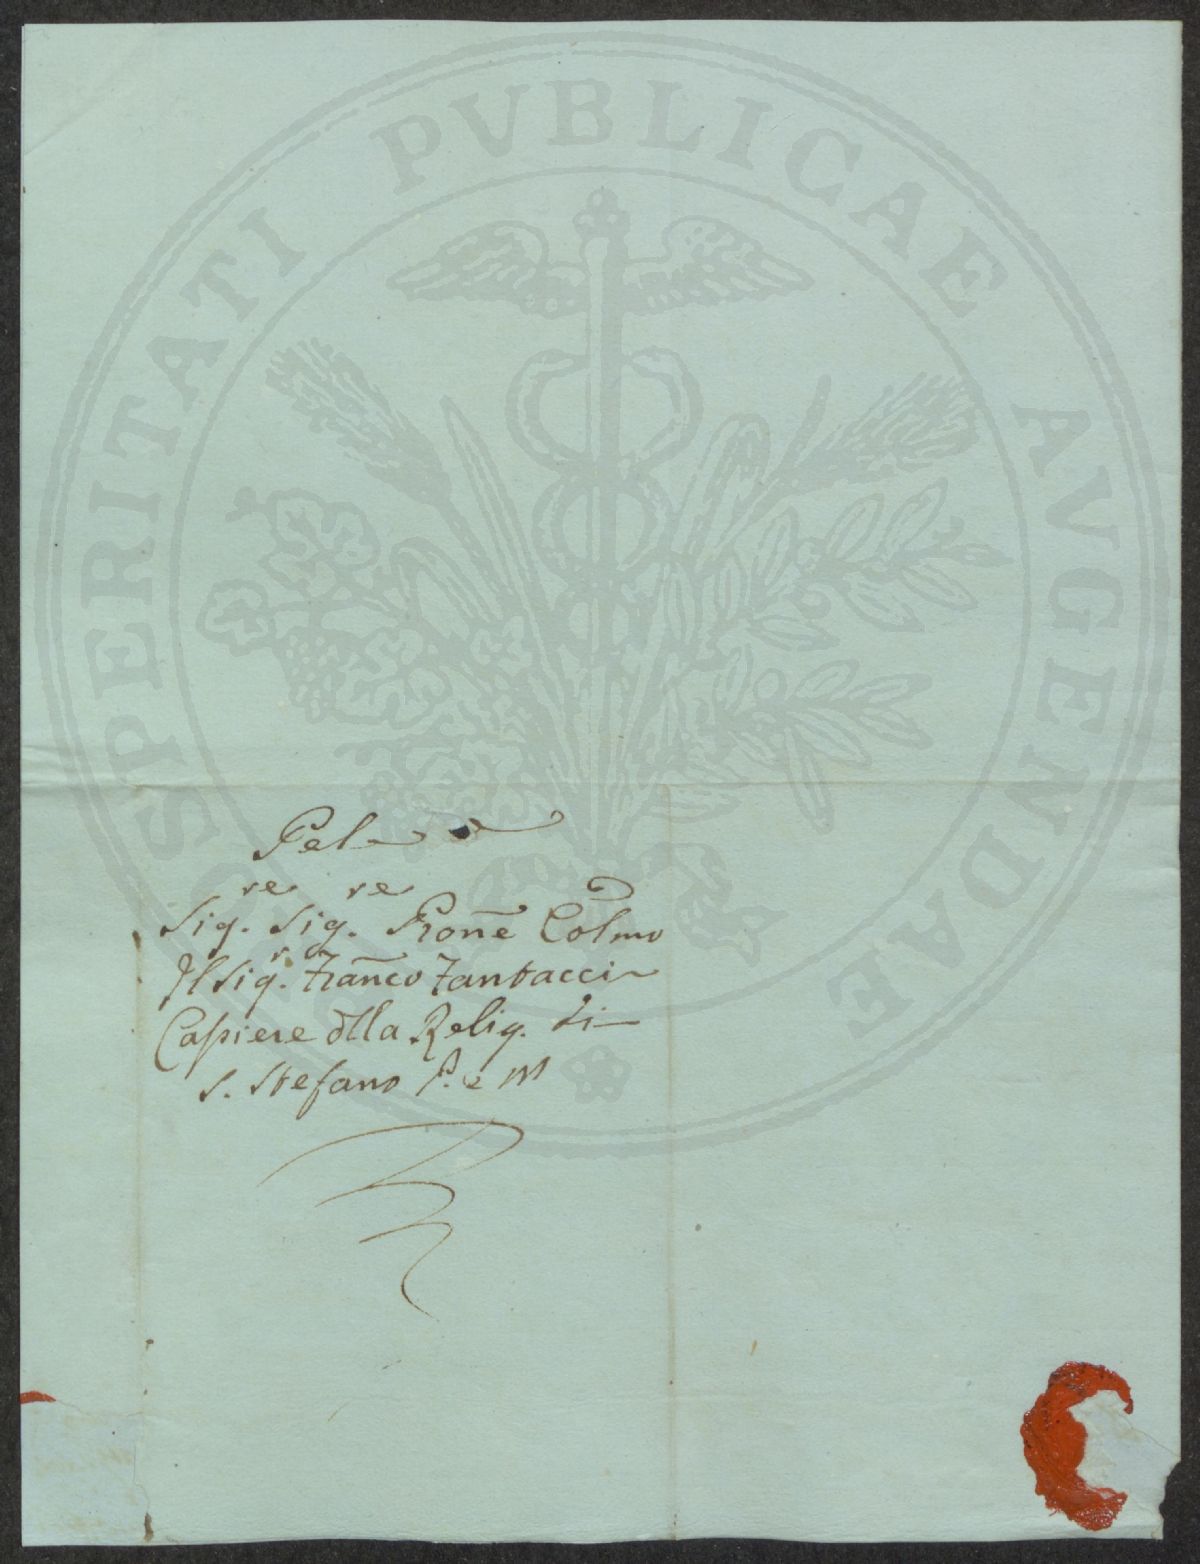 PROSPERITATI PVBLICAE AVGENDAE
Pel
Sig.re Sig.re Prone Colmo
Il Sig.r Franco Fantacci
Cassiere dlla Relig. di
S. Stefano P. e M